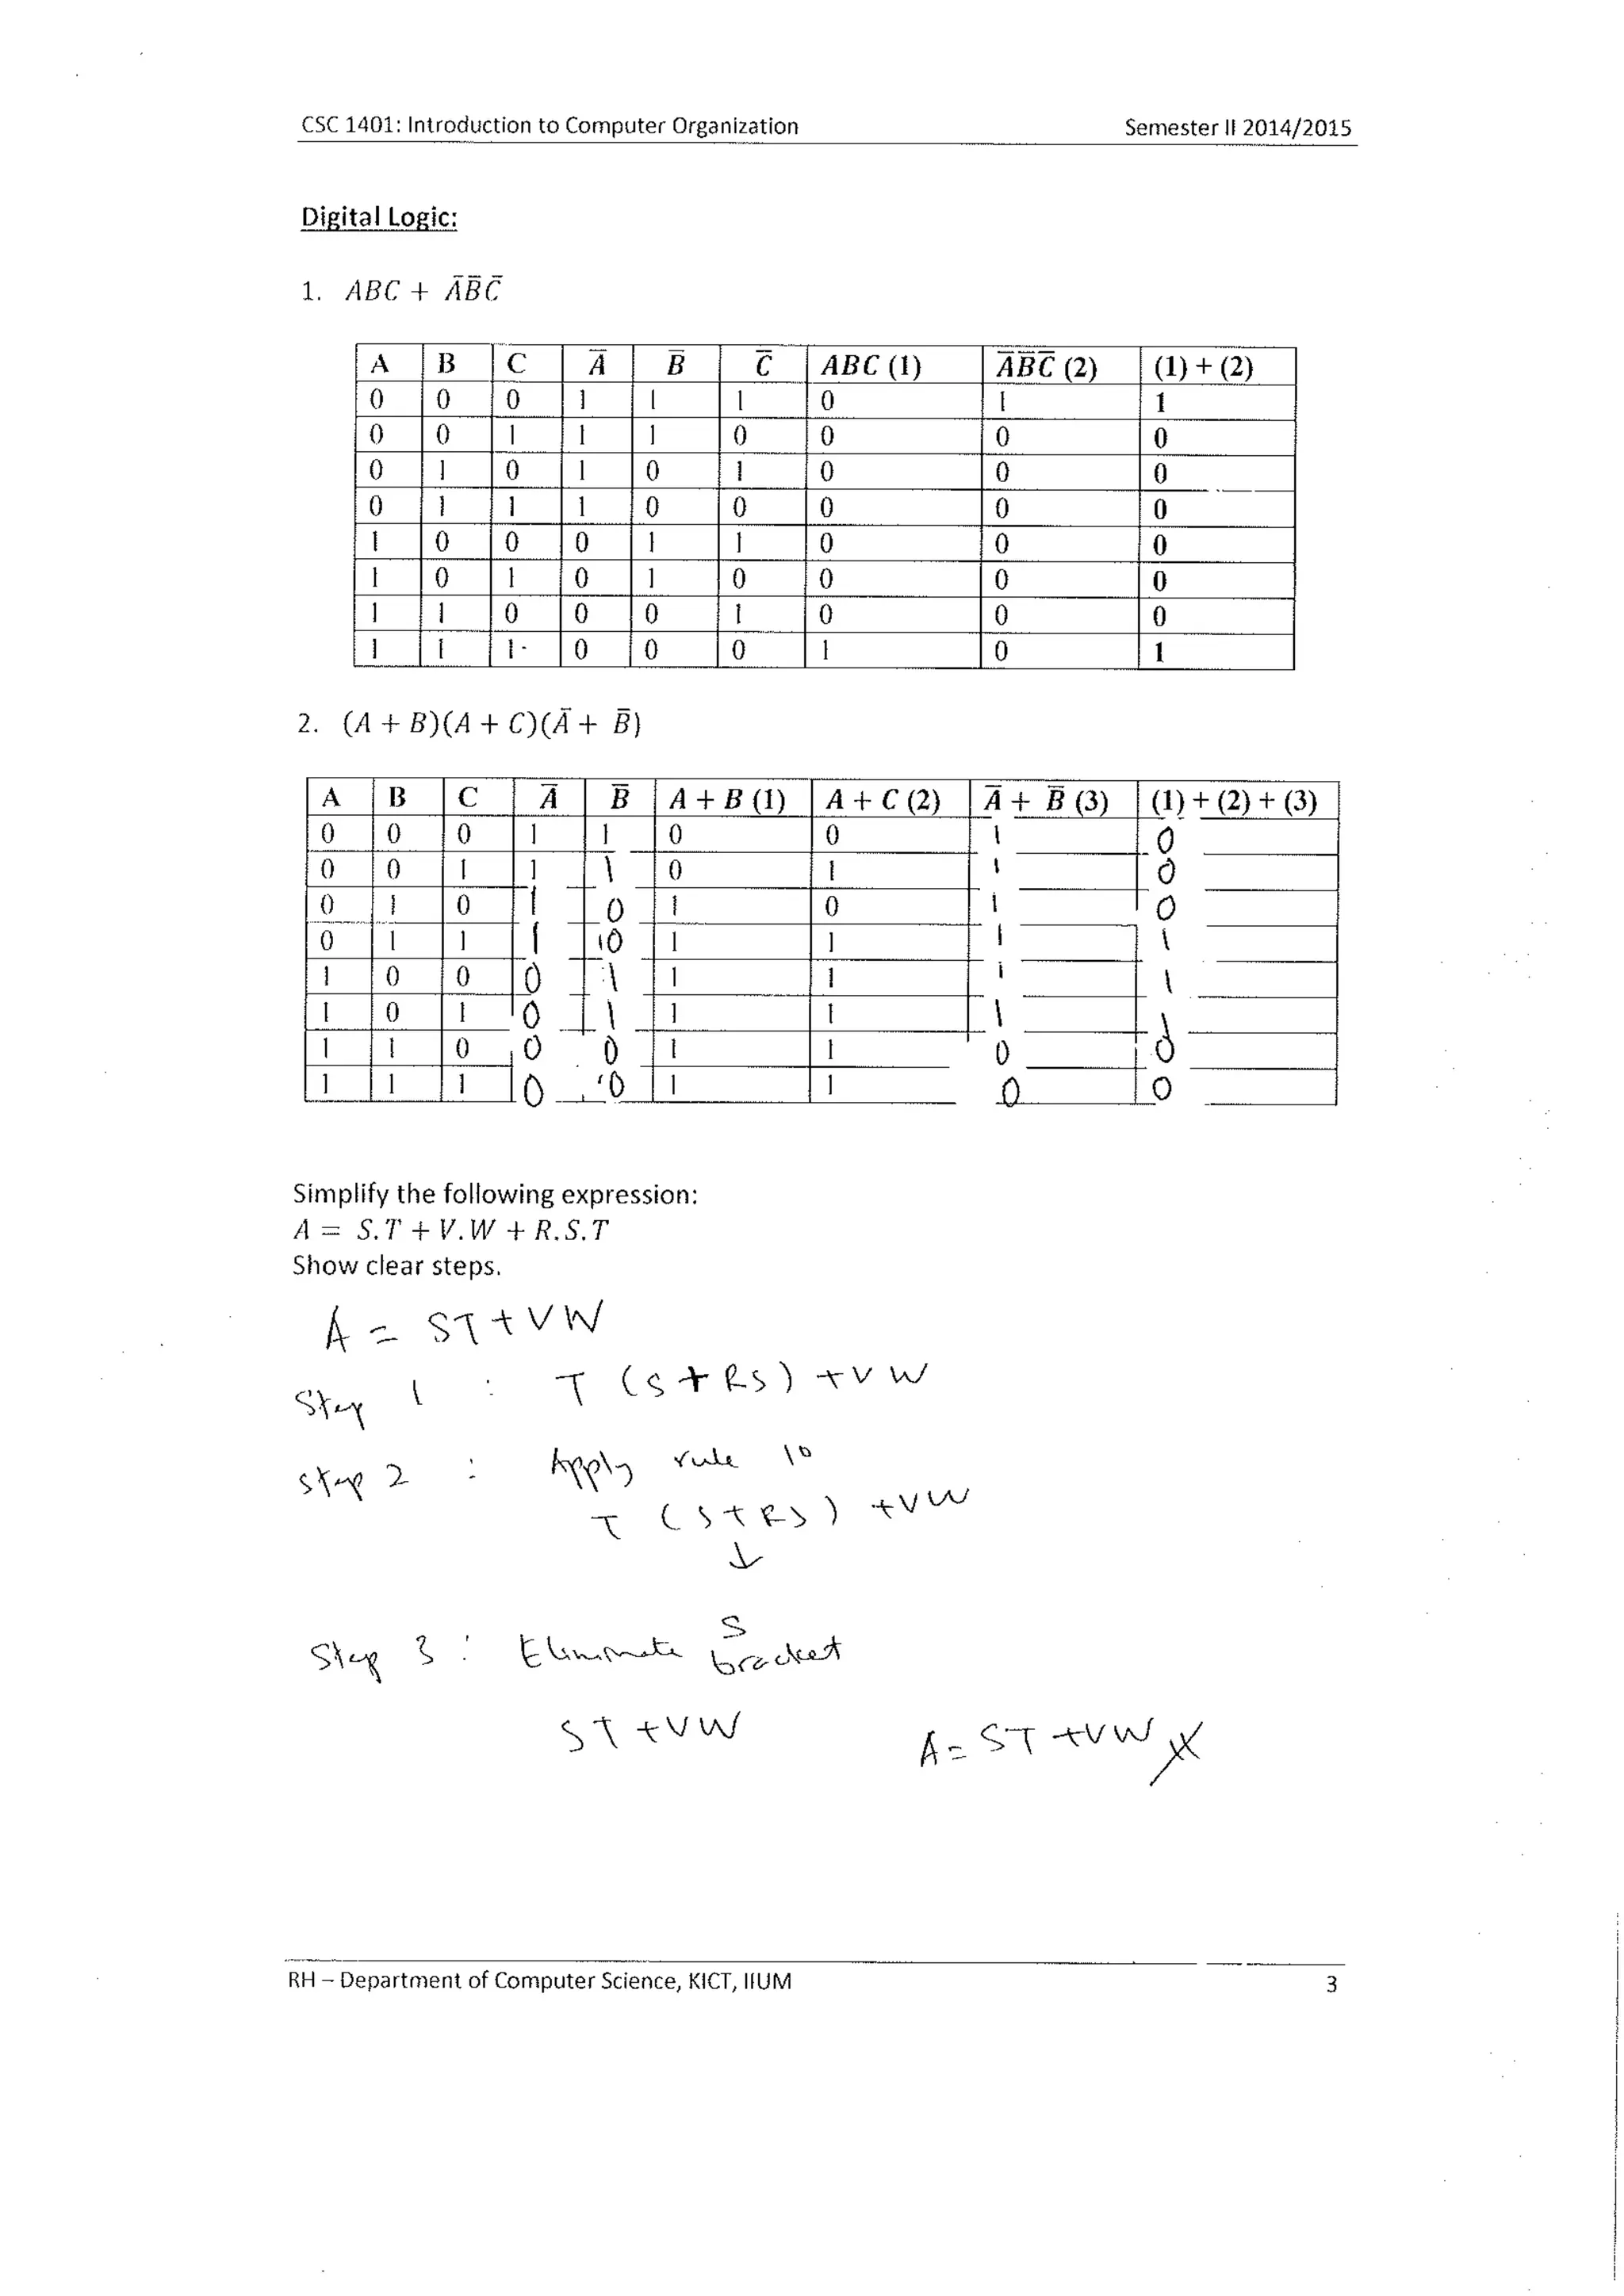 CSC 1401: Introduction to Computer Organization Semester II 2014/2015
Digital Logic:
1. ABC + A̅B̅C̅
A B C A̅ B̅ C̅ ABC (1) A̅B̅C̅ (2) (1) + (2)
0 0 0 1 1 1 0 1 1
0 0 1 1 1 0 0 0 0
0 1 0 1 0 1 0 0 0
0 1 1 1 0 0 0 0 0
1 0 0 0 1 1 0 0 0
1 0 1 0 1 0 0 0 0
1 1 0 0 0 1 0 0 0
1 1 1 0 0 0 1 0 1
2. (A + B)(A + C)(A̅ + B̅)
A B C A̅ B̅ A + B (1) A + C (2) A̅ + B̅ (3) (1) + (2) + (3)
0 0 0 1 1 0 0 1 0
0 0 1 1 1 0 1 1 0
0 1 0 1 0 1 0 1 0
0 1 1 1 0 1 1 1 1
1 0 0 0 1 1 1 1 1
1 0 1 0 1 1 1 1 1
1 1 0 0 0 1 1 0 0
1 1 1 0 0 1 1 0 0
Simplify the following expression:
A = S.T + V.W + R.S.T
Show clear steps.
A = ST + VW
Step 1 : T (S + RS) + VW
Step 2 : Apply rule 10
T (S + RS) + VW
↓
S
Step 3 : Eliminate bracket
ST + VW A = ST + VW
RH – Department of Computer Science, KICT, IIUM 3